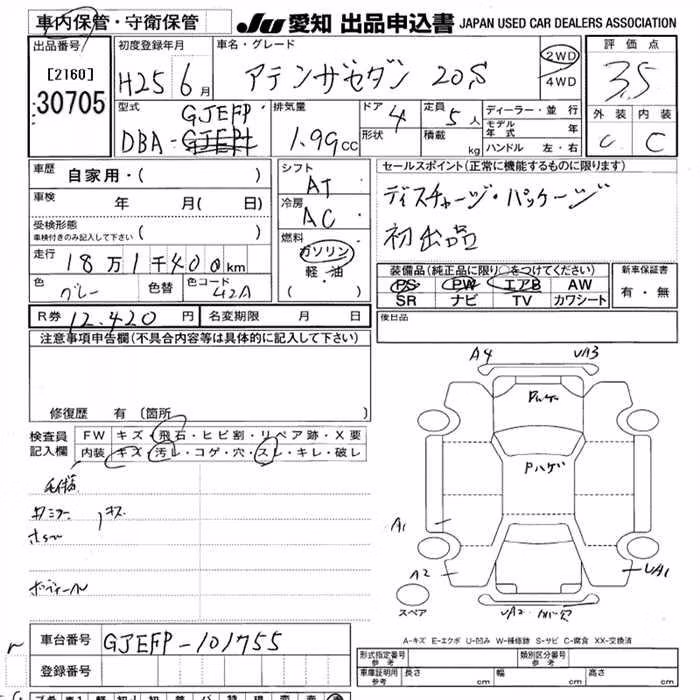 車内保管・守衛保管
JU 愛知 出品申込書 JAPAN USED CAR DEALERS ASSOCIATION
出品番号
[2160]
30705
初度登録年月
H25 6月
車名・グレード
アテンザセダン 20S
2WD
4WD
評価点
3.5
外装 内装
C C
型式
GJEFP
DBA-
排気量
1.99cc
ドア 4
形状
定員 5人
積載 kg
ディーラー・並行
モデル年式 年
ハンドル 左・右
車歴 自家用・( )
車検 年 月( 日)
受検形態
車検付きのみ記入して下さい ( )
走行 18万1千400km
色 グレー
色替
色コード 42A
シフト
AT
冷房
AC
燃料
ガソリン
軽・油
( )
セールスポイント(正常に機能するものに限ります)
ディスチャージ・パッケージ
初出品
装備品(純正品に限り○をつけてください)
PS PW エアB AW
SR ナビ TV カワシート
新車保証書
有・無
R券 12,420円
名変期限 月 日
後日品
注意事項申告欄(不具合内容等は具体的に記入して下さい)
修復歴 有 (箇所 )
検査員
記入欄
FW キズ・飛石・ヒビ割・リペア跡・X要
内装 キズ・汚レ・コゲ・穴・スレ・キレ・破レ
A4
UA3
Pハゲ
A1
A2
UA1
UA2
スペア
A-キズ E-エクボ U-凹み W-補修跡 S-サビ C-腐食 XX-交換済
車台番号 GJEFP-101755
登録番号
形式指定番号
参考
類別区分番号
参考
車庫証明用
参考
長さ cm
幅 cm
高さ cm